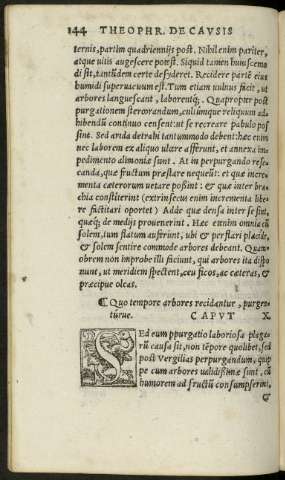 144 THEOPHR. DE CAVSIS
ternis, partim quadriennijs post. Nihil enim pariter,
atque uitis augescere potest. Siquid tamen huiuscemo
di sit, tantũdem certe desyderet. Recidere partē eius
humidi superuacuum est. Tum etiam uulnus facit, ut
arbores langueãt, laborentq;. Quapropter post
purgationem stercorandum, cultũmque reliquum ad-
hibendũ continuo censent: ut se recreare pabulo pos
sint. Sed arida detrahi tantummodo debent: hæc enim
nec laborem ex aliquo ulcere afferunt, et annexa im
pedimento alimoniæ sunt. At in perpurgando rese-
canda, quæ fructum præstare nequeũt: et quæ incre-
menta cæterorum uetare possint: & quæ inter bra-
chia constiterint (extrinsecus enim incrementa libe-
re suscitari oportet) Adde quæ densa inter se sint,
quæq; de medijs prouenerint. Hæc etenim omnia cũ
solem, tum flatum auferunt, ubi & perflari placide,
& solem sentire commode arbores debeant. Quam-
obrem non improbe illi faciunt, qui arbores ita dispo
nunt, ut meridiem spectent, ceu ficos, ac cæteras, &
præcipue oleas.
¶ Quo tempore arbores recidantur, purgen-
túrue. CAPVT X.
SEd eum ppurgatio laboriosa plage
rũ causa sit, non tẽpore quolibet, sed
post Vergilias perpurgandum, quip
pe cum arbores ualidissimæ sunt, cũ
humorem ad fructũ consumpserint,
&